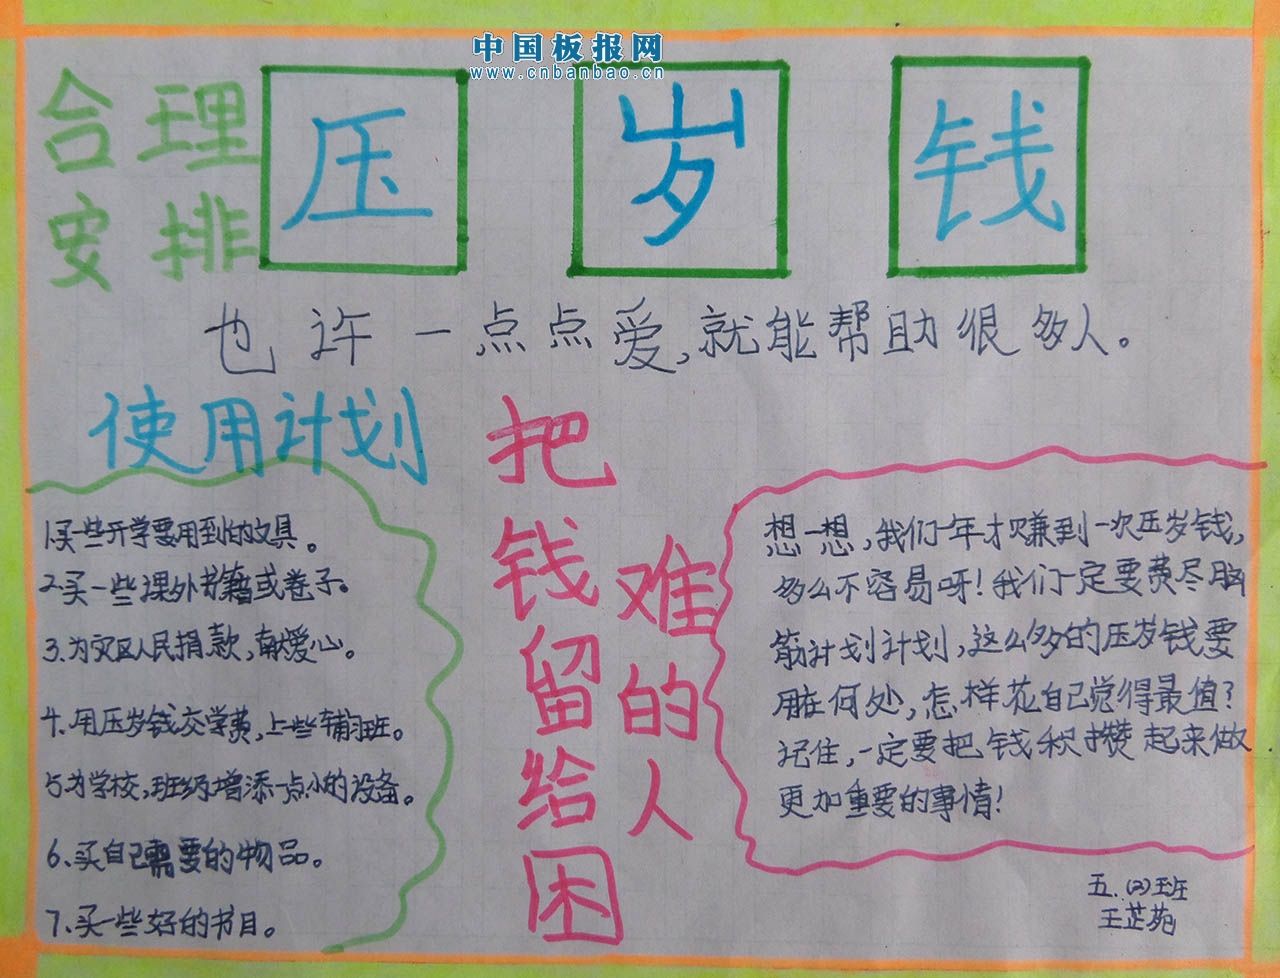 中国板报网
www.cnbanbao.cn
合理
安排
压岁钱
也许一点点爱,就能帮助很多人。
使用计划
1.买一些开学要用到的文具。
2.买一些课外书籍或卷子。
3.为灾区人民捐款,献爱心。
4.用压岁钱交学费,上一些辅习班。
5.为学校,班级增添一点小的设备。
6、买自己需要的物品。
7、买一些好的书目。
把钱留给困
难的人
想一想,我们一年才赚到一次压岁钱,
多么不容易呀!我们一定要费尽脑
筋计划计划,这么多的压岁钱要
用在何处,怎样花自己觉得最值?
记住,一定要把钱积攒起来做
更加重要的事情!
五.(2)班
王芷苑